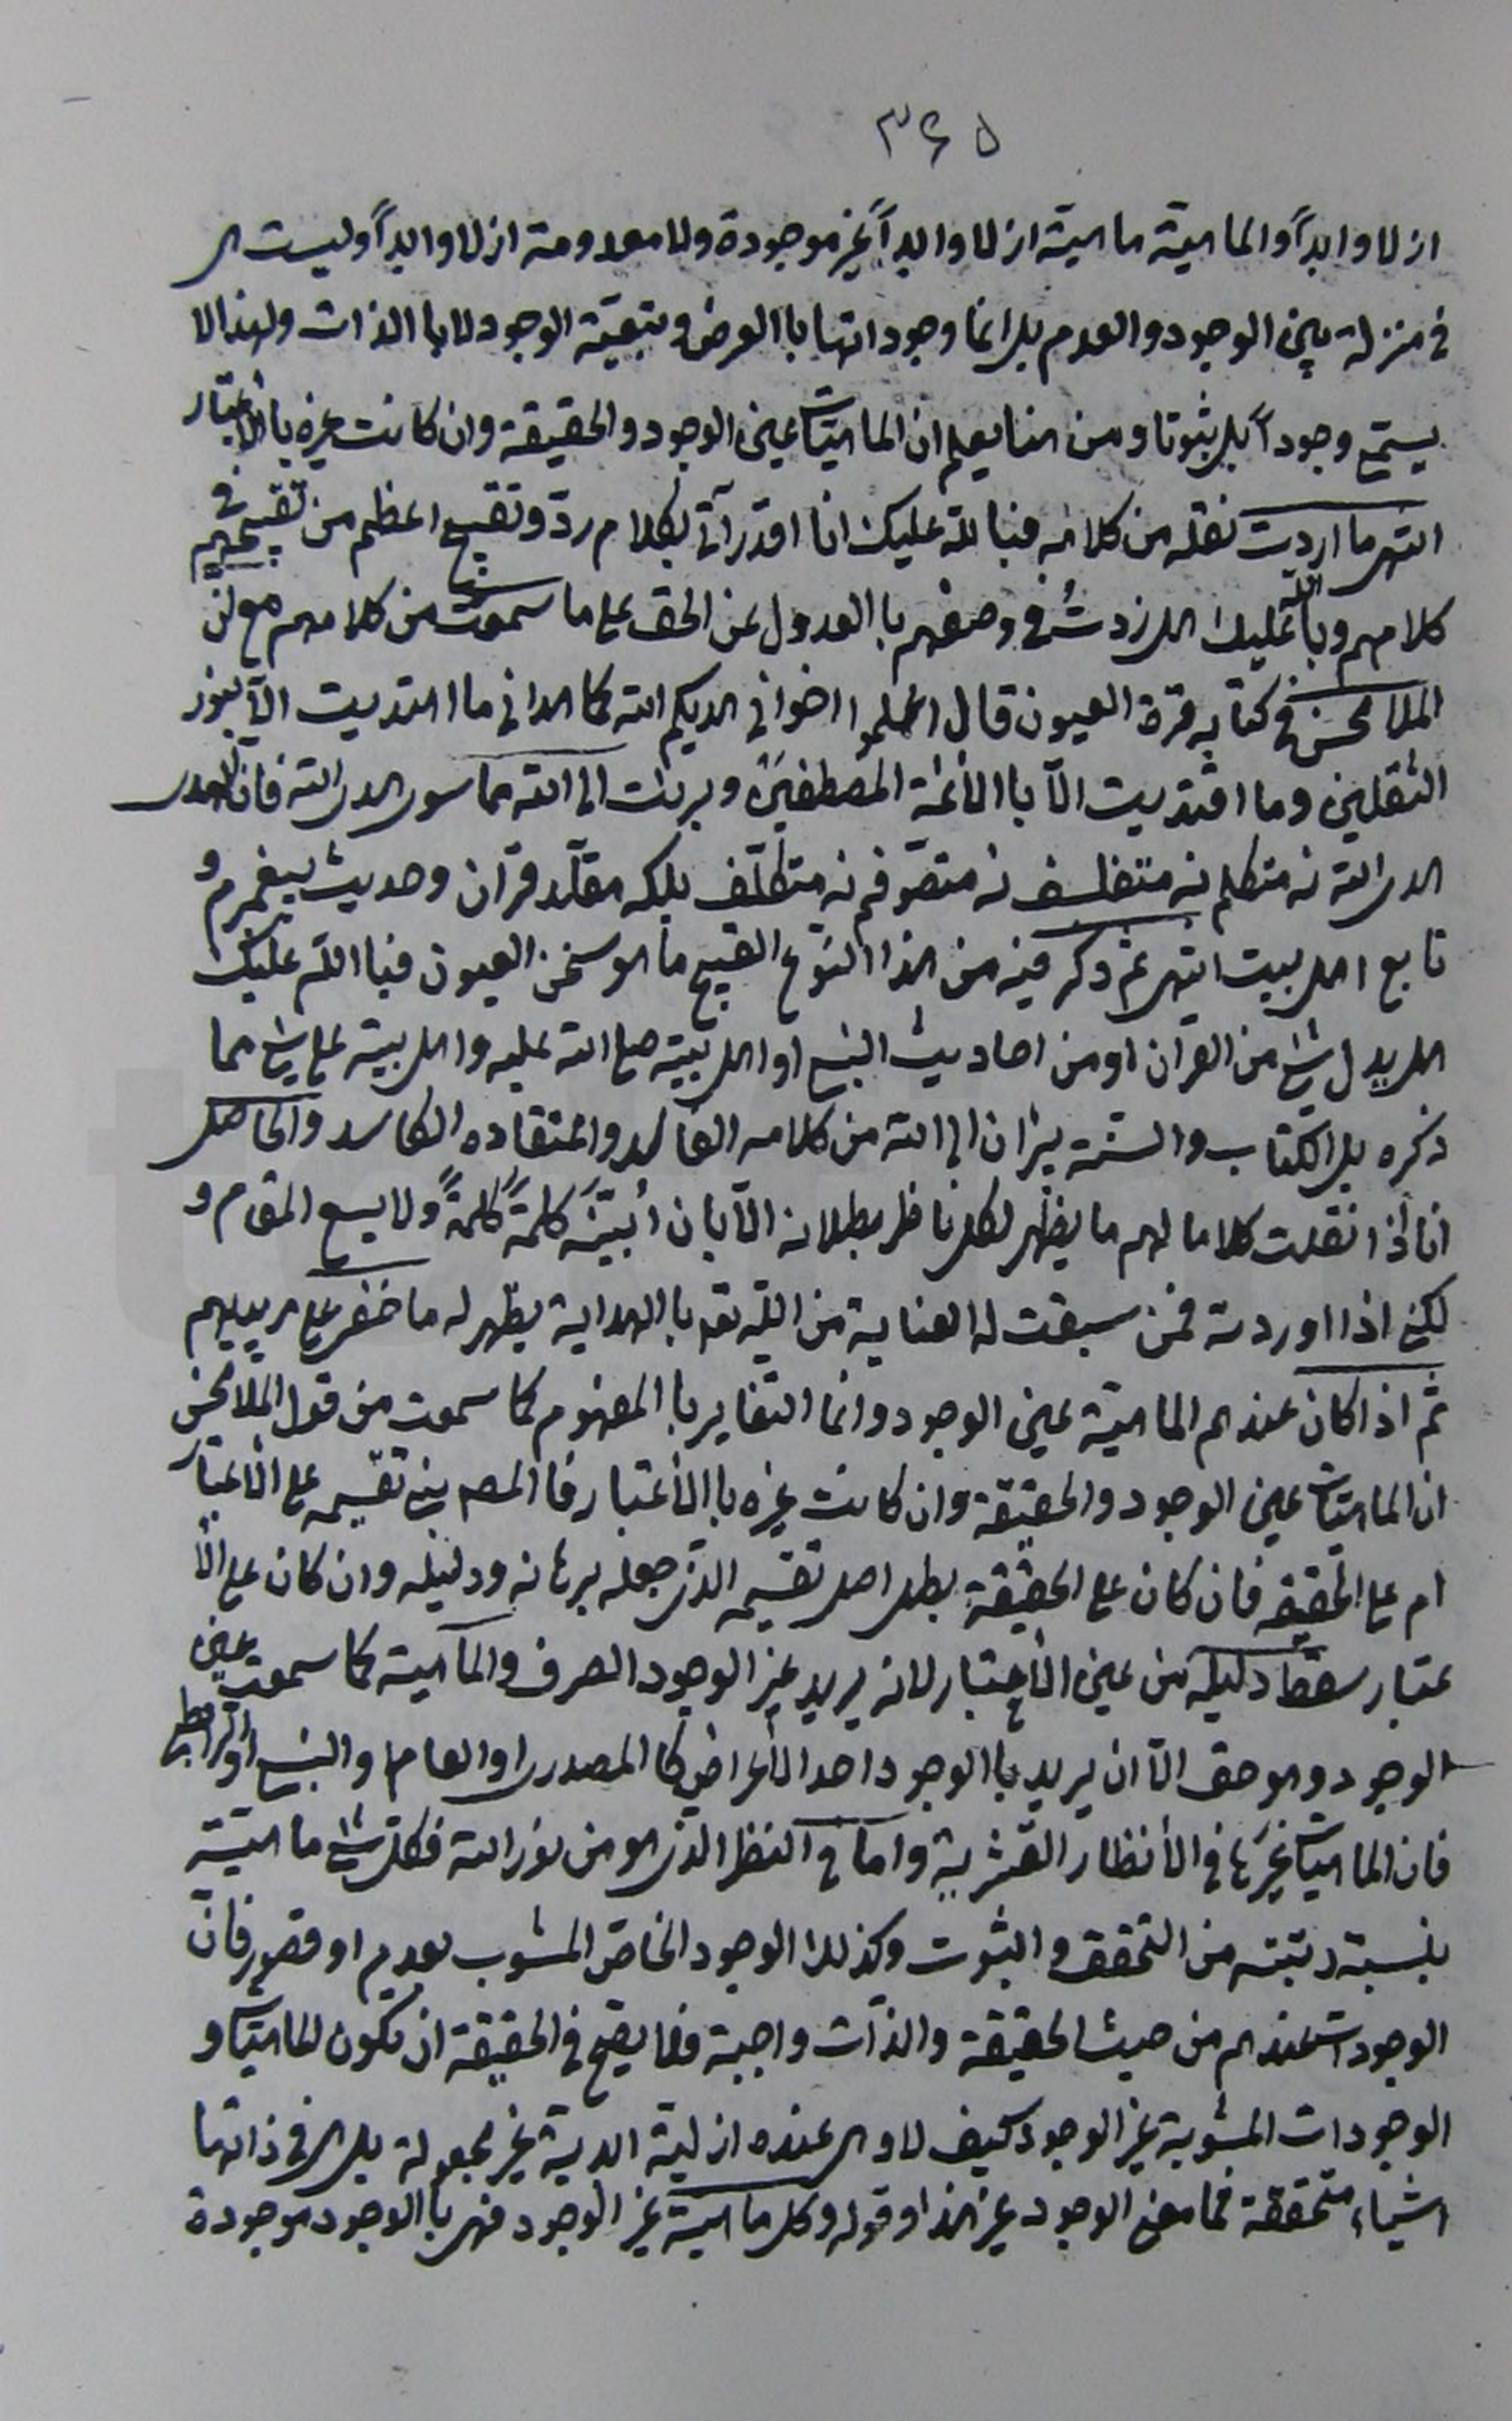 ۳۶۵
ازلا وابداً والماهية ماهية ازلا وابداً غير موجودة ولا معدومة ازلا وابداً وليست هى
فى منزلة بين الوجود والعدم بل انما وجوداتها باالعرض وبتبعية الوجود لا باالذات ولهذا لا
يسمّى وجوداً بل ثبوتا ومن هنا يعلم ان الماهيّات عين الوجود والحقيقة وان كانت غيره باالاعتبار
انتهى ما اردت نقله من كلامه فبالله عليك انا اقدر آتى بكلام ردّ وتقبيح اعظم من تقبيحهم فى
كلامهم وباالله عليك هل زدت فى وصفهم باالعدول عن الحق على ما سمعت من كلامهم مع انّ
الملا محسن فى كتابه قرة العيون قال اعلموا اخوانى هديكم الله كما هدانى ما اهتديت الآ بنور
الثقلين وما اقتديت الآ باالائمة المصطفين وبرئت الى الله مما سوى هدى الله فان الهدى
هدى الله نه متكلم نه متفلسف نه متصوّفم نه متكلّف بلكه مقلّد قرآن وحديث پيغمبرم و
تابع اهل بيت انتهى ثم ذكر فيه من هذا النّوع القبيح ما هو سخن العيون فباالله عليك
هل يدل شئ من القرآن او من احاديث النبى او اهل بيته صلى الله عليه واهل بيته على شئ مما
ذكره بل الكتاب والسّنة يبرآن الى الله من كلامه الفاسد واعتقاده الكاسد والحاصل
انا اذا نقلت كلاما لهم ما يظهر لكل ناظر بطلانه الآ بان اُبيّنَه كلمةً كلمةً ولا يسع المقام و
لكنى اذا اوردته فمن سبقت له العناية من الله تعـ باالهداية يظهر له ما خفى على مريديهم
ثم اذا كان عندهم الماهية عين الوجود وانما التغاير باالمفهوم كما سمعت من قول الملا محسن
ان الماهيّات عين الوجود والحقيقة وان كانت غيره باالأعتبار فاالمصـ بنى تقسيمه على الأعتبار
ام على الحقيقة فان كان على الحقيقة بطل اصل تقسيمه الذى جعله برهانه ودليله وان كان على الأ
عتبار سقط دليله من عين الأعتبار لانه يريد غير الوجود الصرف والماهية كما سمعت عين
الوجود وهو حق الآ ان يريد باالوجود احد الأعراض كا المصدرى او العام او النسبى او الرابطى
فان الماهيات غيرها فى الأنظار القشرية واما فى النظر الذى هو من نور الله فكل شئ ماهيّته
بنسبة رتبته من التحقق والثبوت وكذلك الوجود الخاصّ المشوب بعدم او قصور فانّ
الوجودات عندهم من حيث الحقيقة والذّات واجبة فلا يصح فى الحقيقة ان تكون الماهيّات و
الوجودات المشوبة غير الوجود كيف لا وهى عنده ازلية ابدية غير مجعولة بل هى فى ذاتها
اشياء متحققة فما معنى الوجود غير هذا وقوله وكل ماهية غير الوجود فهى باالوجود موجودة